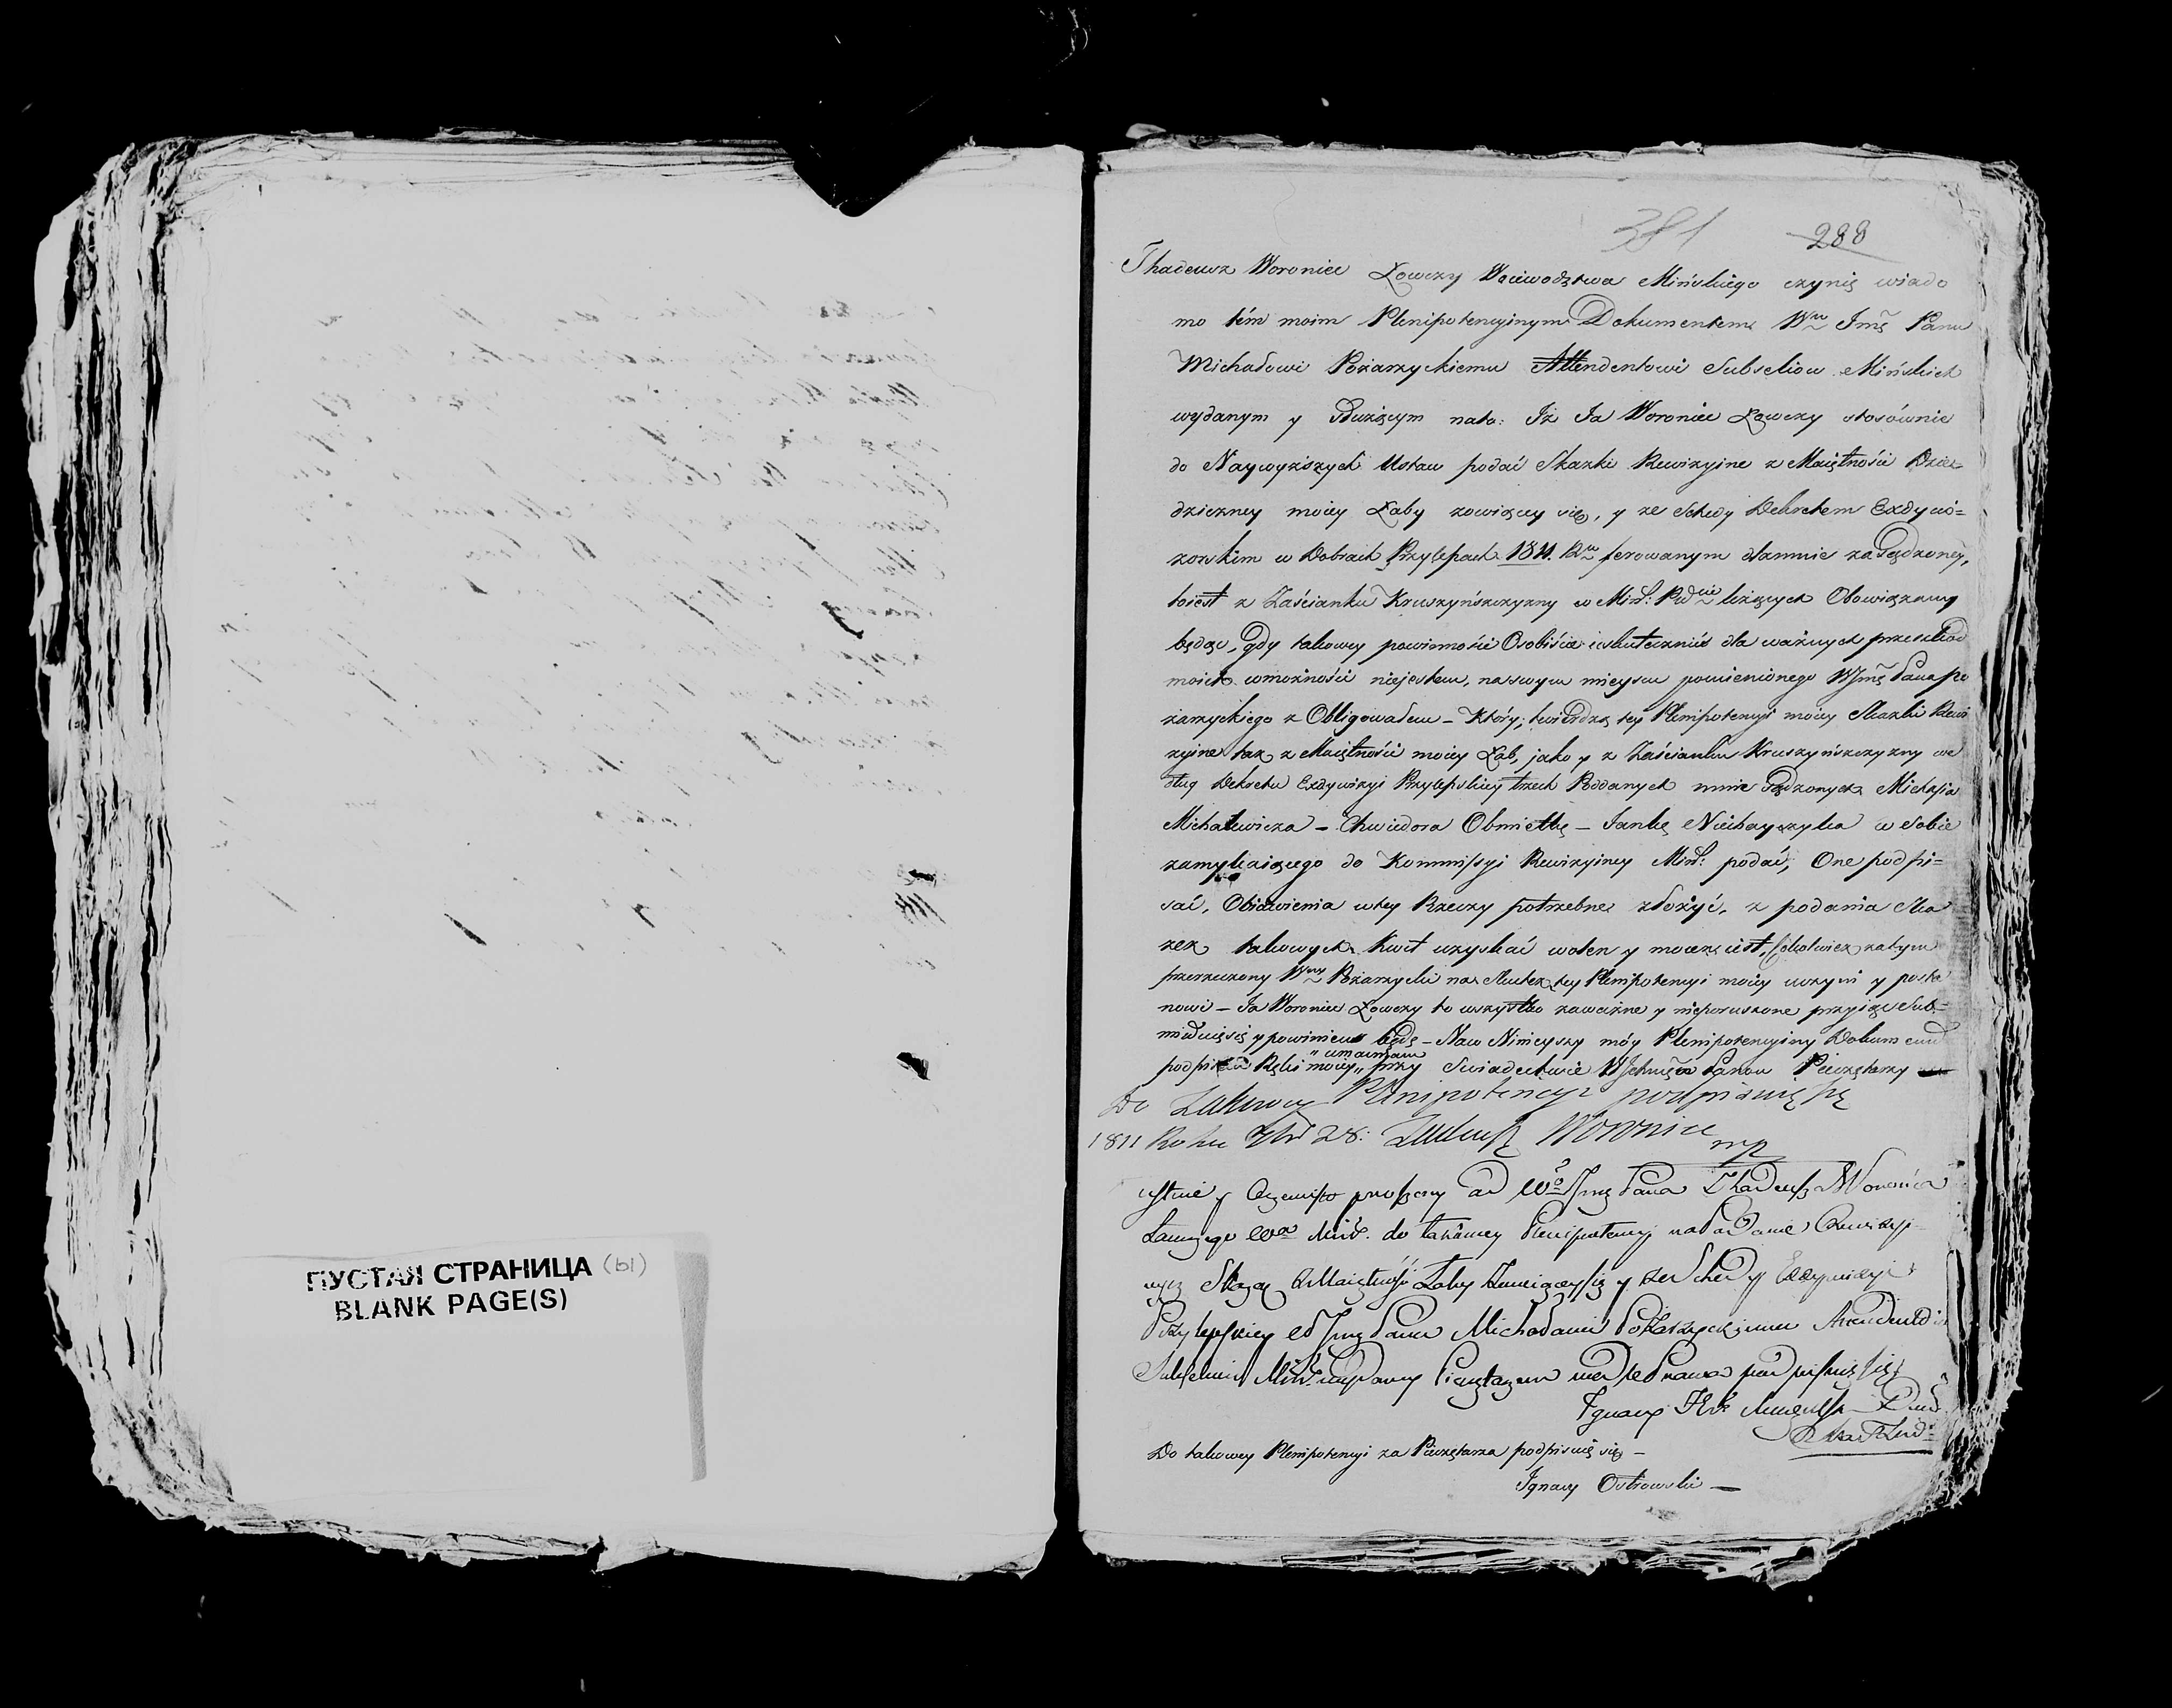 ПУСТАЯ СТРАНИЦА (ы)
BLANK PAGE(S)
381 288
Thadeusz Woroniec Łowczy Woiewodztwa Mińskiego czynię wiado
mo tém moim Plenipotencyinym Dokumentem Wmu Jmę Panu
Michałowi Pożarzyckiemu Attendentowi Subseliow Mińskich
wydanym y służącym nato: Iż Ja Woroniec Łowczy stosównie
do Naywyższych Ustaw podać Skazki Rewizyine z Maiętności Dzie
dziczney moiey Łaby zowiącey się, y ze Schedy Dekretem Exdywi=
zorskim w Dobrach Przylepach 1811. Ru ferowanym dlamnie zasądzoney,
toiest z Zaścianku Kruszyńszczyzny w Miń: Pwcie leżących Obowiązany
będąc, gdy takowey powinności Osobiście uskutecznić dla ważnych przeszkod
moich wmożności niejestem, naswym mieyscu pomienionego WJmę Pana Po
żarzyckiego z Obligowałem – Który, twierdzą tey Plenipotencyi moiey Skazki Rewi
zyine tak z Maiętności moiey Łab, jako y z Zaścianku Kruszyńszczyzny we
dług Dekretu Exdywizyi Przylepskiey trzech Poddanych mnie sądzonych Michasia
Michalewicza – Chwiedora Obmietkę – Jankę Niechayczyka w Sobie
zamykaiącego do Kommissyi Rewizyiney Miń: podać, One podpi=
sać, Obiawienia wtey Rzeczy potrzebne złożyć, z podania Ska
zek takowych Kwit uzyskać wolen y mocen iest, Cokolwiek zatym
przerzeczony Wny Pożarzycki na Skutek tey Plenipotencyi moiey uczyni y posta
nowi – Ja Woroniec Łowczy to wszystko zaważne y nieporuszone przyiąć Sub=
mittuię się y powinien będę – Naco Ninieyszy móy Plenipotencyiny Dokument
"umacniam
podpisem Ręki moiey" przy Swiadectwie WJchmśćw Panow Pieczętarzy
Do Takowey Plenipotencyi podpisuię się
1811 Roku 28: Tadeusz Woronicc mp
ustnie y Oczewisto proszony od Wo Jmę Pana Thadeusza Woronica
Łowczego Miń. do takowey Plenipotencyi na Podanie Rewizyi
nych Skazek z Maiętności Łaby Zowiącey się y ze Schedy Exdywizyi
Przylepskiey WJmę Panu Michałowi Pożarzyckiemu Attendentowi
Subseliow Miń: wydaney Pieczętarz wedle Prawa podpisuię się
Ignacy
Do takowey Plenipotencyi za Pieczętarza podpisuię się –
Ignacy Ostrowski –